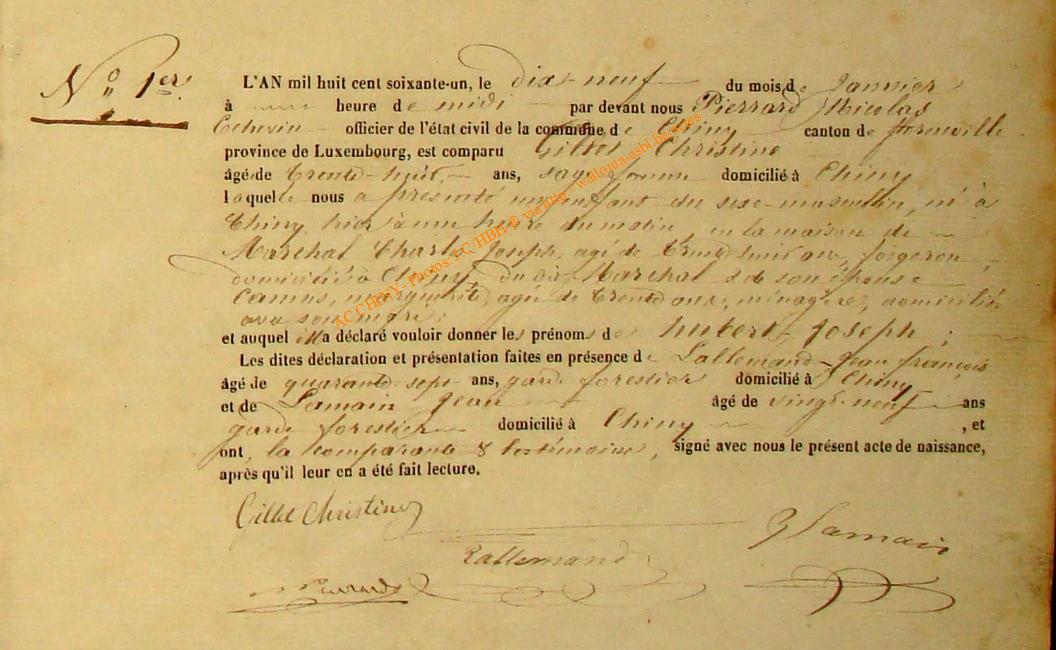 N° 1er.
L'AN mil huit cent soixante-un, le dix-neuf du mois de Janvier
à heure de midi par devant nous Pierrard Nicolas
Echevin officier de l'état civil de la commune de Chiny canton de florenville
province de Luxembourg, est comparu Gillet Christine
âgée de trente-huit ans, sage femme domicilié à Chiny
laquelle nous a présenté un enfant du sexe masculin, né à
Chiny, hier à une heure du matin, en la maison de
Maréchal Charles Joseph, agé de trente huit ans, forgeron,
domicilié à Chiny, du dit Maréchal & de son épouse
Camus, marguerite, agée de trente ans, ménagère, domiciliée
avec son mari;
et auquel illa déclaré vouloir donner les prénoms de hubert Joseph;
Les dites déclaration et présentation faites en présence de Lallemand Jean françois
âgé de quarante-sept ans, garde forestier domicilié à Chiny
et de Lamain Jean âgé de vingt-neuf ans
garde forestier domicilié à Chiny, et
ont, la comparante & les témoins, signé avec nous le présent acte de naissance,
après qu'il leur en a été fait lecture.
Gillet Christine
J Lamain
Lallemand
Pierrard
AC CHINY - Photos: FC/HBH @ viaduip - wallonia-asbl.be